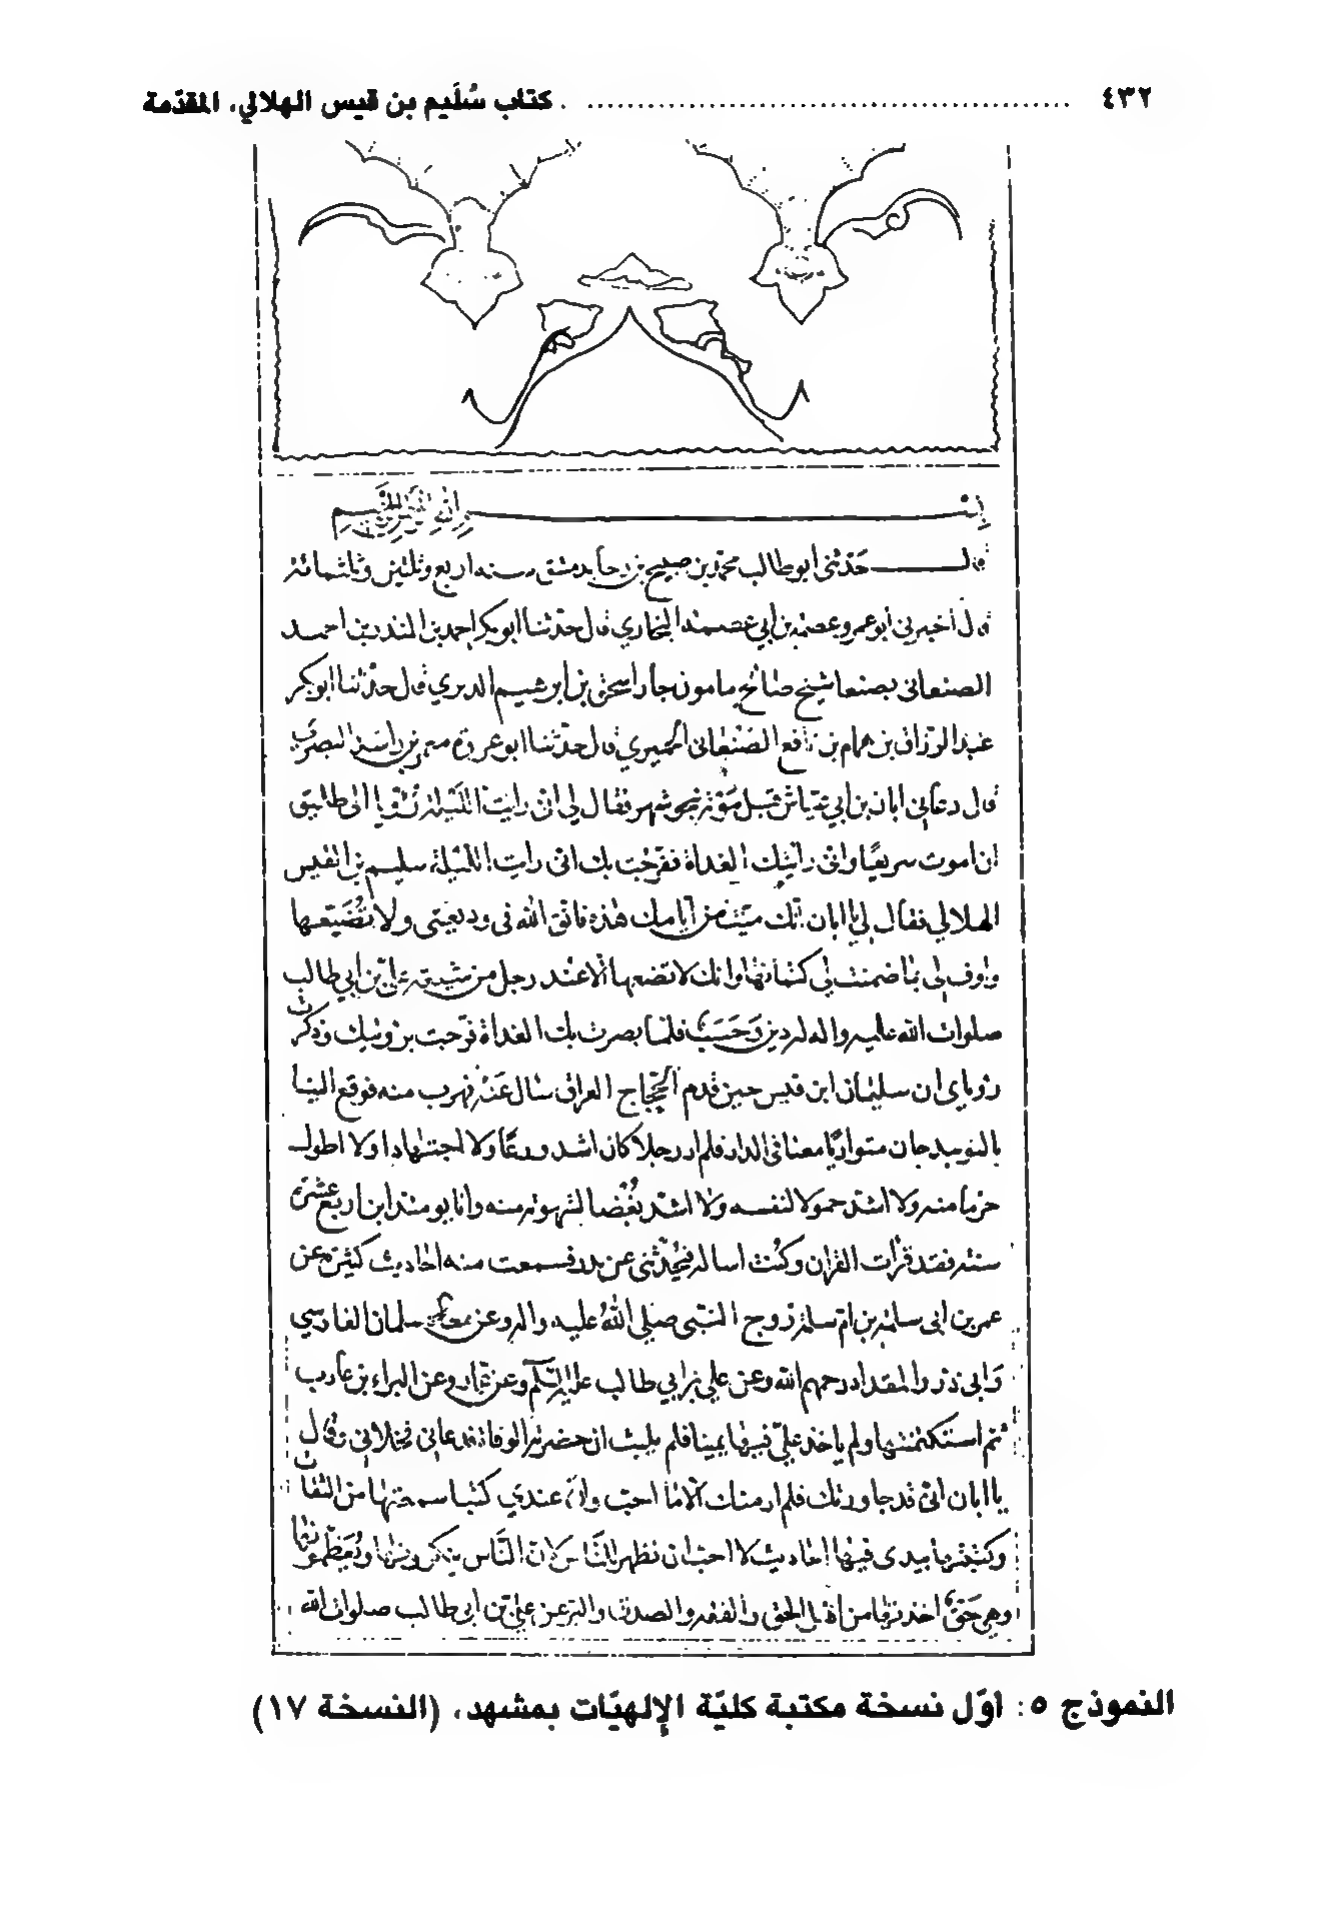 ٤٣٢ ............ كتاب سُلَيم بن قيس الهلالي، المقدّمة
بسم الله الرحمن الرحيم
قال حدثنى ابو طالب محمد بن صبيح بن رجا بدمشق سنه اربع وثلثين وثلثمائة
قال اخبرنى ابو عمرو عصمة بن ابي عصمة البخاري قال حدثنا ابوبكر احمد بن المنذر بن احمد
الصنعانى بصنعا شيخ صالح مامون جار اسحق بن ابرهيم الدبري قال حدثنا ابوبكر
عبد الرزاق بن همام بن نافع الصنعانى الحميري قال حدثنا ابو عروة معمر بن راشد البصرى
قال دعانى ابان بن ابي عياش قبل موته بنحو شهر فقال لي انى رايت الليلة رؤيا انى خليق
ان اموت سريعًا وانى رايتك الغداة ففرحت بك انى رايت الليلة سليم بن القيس
الهلالي فقال لي يا ابان انك ميت من ايامك هذه فاتق الله فى وديعتى ولا تضيعها
واوف لى بما ضمنت لي كتمانها وانك لا تضعها الا عند رجل من شيعة على بن ابي طالب
صلوات الله عليه واله له دين وحسب فلما بصرت بك الغداة فرحت برؤيتك وذكرت
رؤياي ان سليمان ابن قيس حين قدم الحجاج العراق سال عنه فهرب منه فوقع الينا
بالنوبندجان متواريًا معنا فى الدار فلم ار رجلا كان اشد ورعًا ولا اجتهادا ولا اطول
حزنا منه ولا اشد خمولا لنفسه ولا اشد بغضا لشهوته منه وانا يومئذ ابن اربع عشرة
سنة فقد قرات القران وكنت اساله فيحدثنى عن بدر فسمعت منه احاديث كثيرة عن
عمر بن ابى سلمة بن ام سلمة زوج النبى صلى الله عليه واله وعن سلمان الفارسي
وابى ذر والمقداد رحمهم الله وعن علي بن ابي طالب عليه السلم وعن عمار وعن البراء بن عازب
ثم استكتمنيها ولم ياخذ علىّ فيها يمينا فلم يلبث ان حضرته الوفاة فدعانى فخلا بى وقال
يا ابان انى قد جاورتك فلم ار منك الا ما احب وان عندي كتبا سمعتها من الثقات
وكتبتها بيدى فيها احاديث لا احب ان تظهر للناس لان الناس ينكرونها ويعظمونها
وهي حق اخذتها من اهل الحق والفقه والصدق والبر عن على بن ابى طالب صلوات الله
النموذج ٥: أوّل نسخة مكتبة كليّة الإلهيّات بمشهد، (النسخة ١٧)